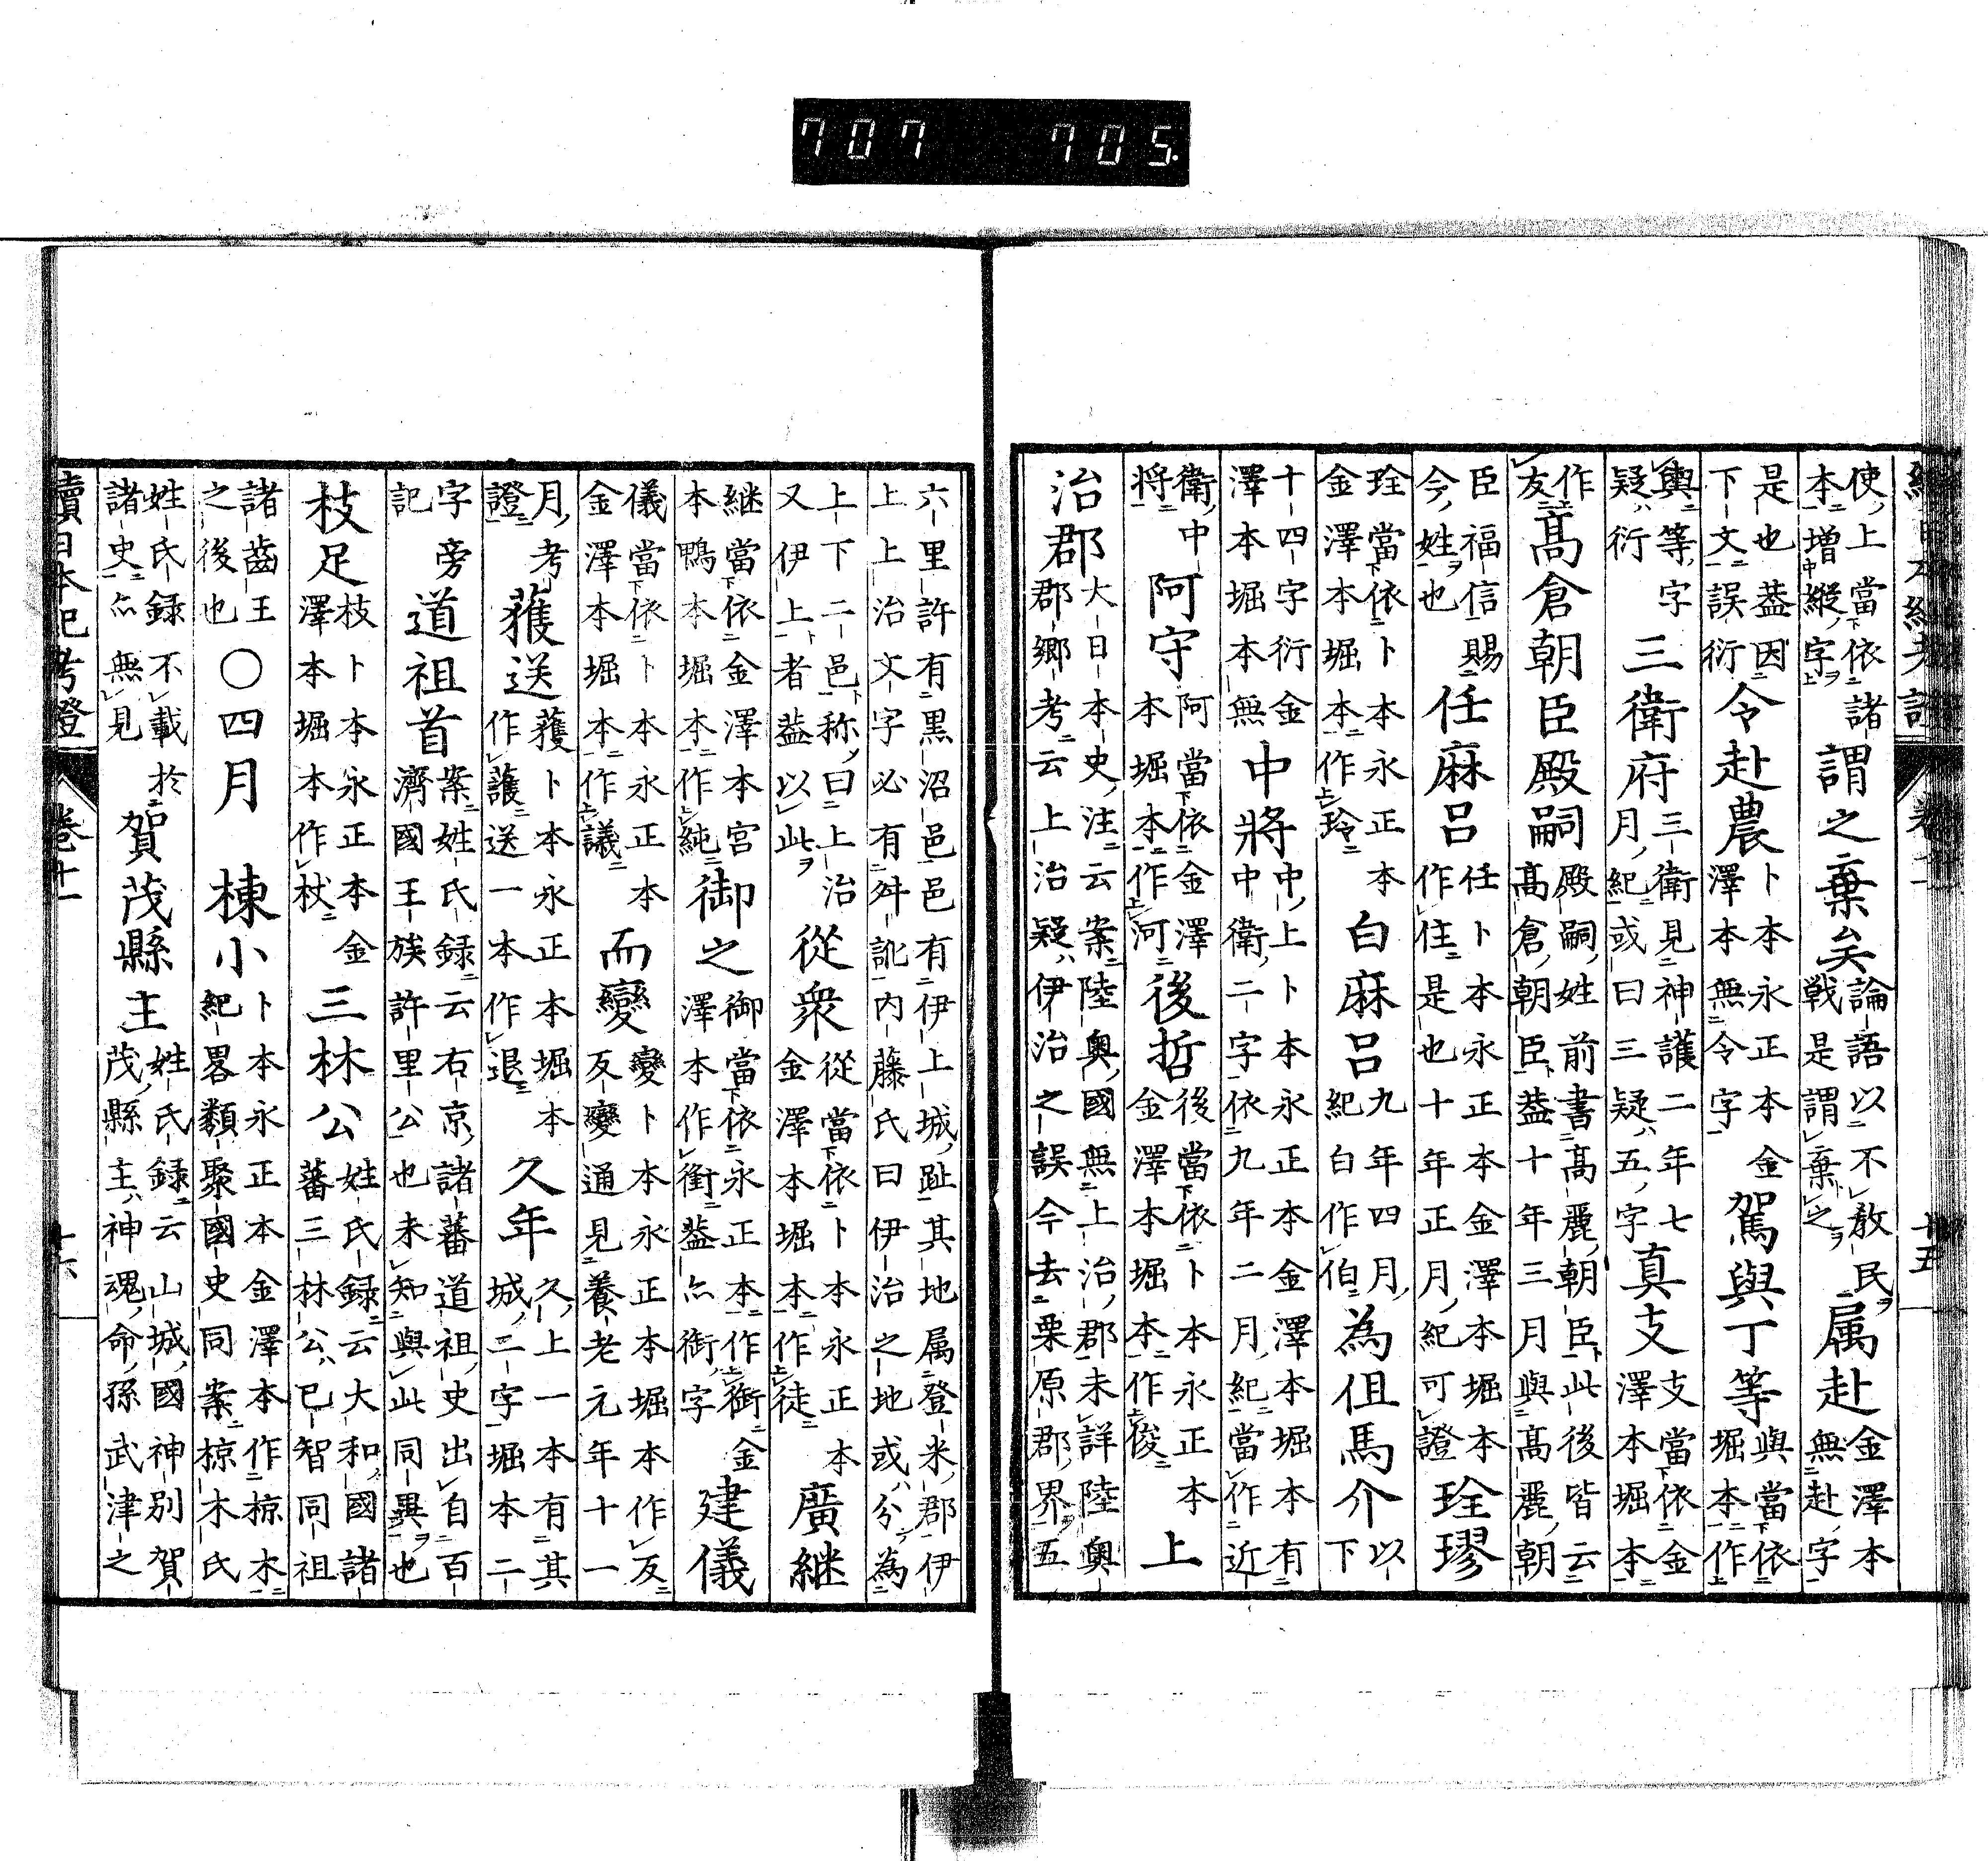 使上當依諸
本増縱字
謂之棄矣
論語以不敎民
戰是謂棄之
属赴
金澤本
無赴字
是也蓋因
下文誤衍
令赴農
卜本永正本金
澤本無令字
駕與丁等
與當依
堀本作
輿等字
疑衍
三衛府
三衛見神護二年七
月紀或曰三疑五字
真支
支當依金
澤本堀本
作
友
高倉朝臣殿嗣
殿嗣姓前書高麗朝臣此後皆云
高倉朝臣蓋十年三月與高麗朝
臣福信賜
今姓也
任麻呂
任卜本永正本金澤本堀本
作住是也十年正月紀可證
璆
當依卜本永正本
金澤本堀本作玲
白麻呂
九年四月
紀白作伯
為伹馬介
以
下
十四字衍金
澤本堀本無
中將
中上卜本永正本金澤本堀本有
中衛二字依九年二月紀當作近
衛中
將
阿守
阿當依金澤
本堀本作河
後哲
後當依卜本永正本
金澤本堀本作俊
上
治郡
大日本史注云案陸奥國無上治郡未詳陸奥
郡郷考云上治疑伊治之誤今去栗原郡界五
十五
六里許有黒沼邑邑有伊上城趾其地属登米郡伊
上上治文字必有舛訛内藤氏曰伊治之地或分為
上下二邑称曰上治
又伊上者蓋以此
從衆
從當依卜本永正本
金澤本堀本作徒
廣継
継當依金澤本宮
本鴨本堀本作純
御之
御當依永正本作衛金
澤本作衝蓋亦衛字
建儀
儀當依卜本永正本
金澤本堀本作議
而變
變卜本永正本堀本作反
反變通見養老元年十一
月考
證
蔆送
蔆卜本永正本堀本
作護送一本作退
久年
久上一本有其
城二字堀本二
字旁
記
道祖首
案姓氏録云右京諸蕃道祖史出自百
濟國王族許里公也未知與此同異也
枝足
枝卜本永正本金
澤本堀本作杖
三林公
姓氏録云大和國諸
蕃三林公已智同祖
諸齒王
之後也
〇四月
棟小
卜本永正本金澤本作椋本
紀畧類聚國史同案椋木氏
姓氏録不載於
諸史亦無見
賀茂縣主
姓氏録云山城國神別賀
茂縣主神魂命孫武津之
續日本紀考證
卷十一
十六
707 705.